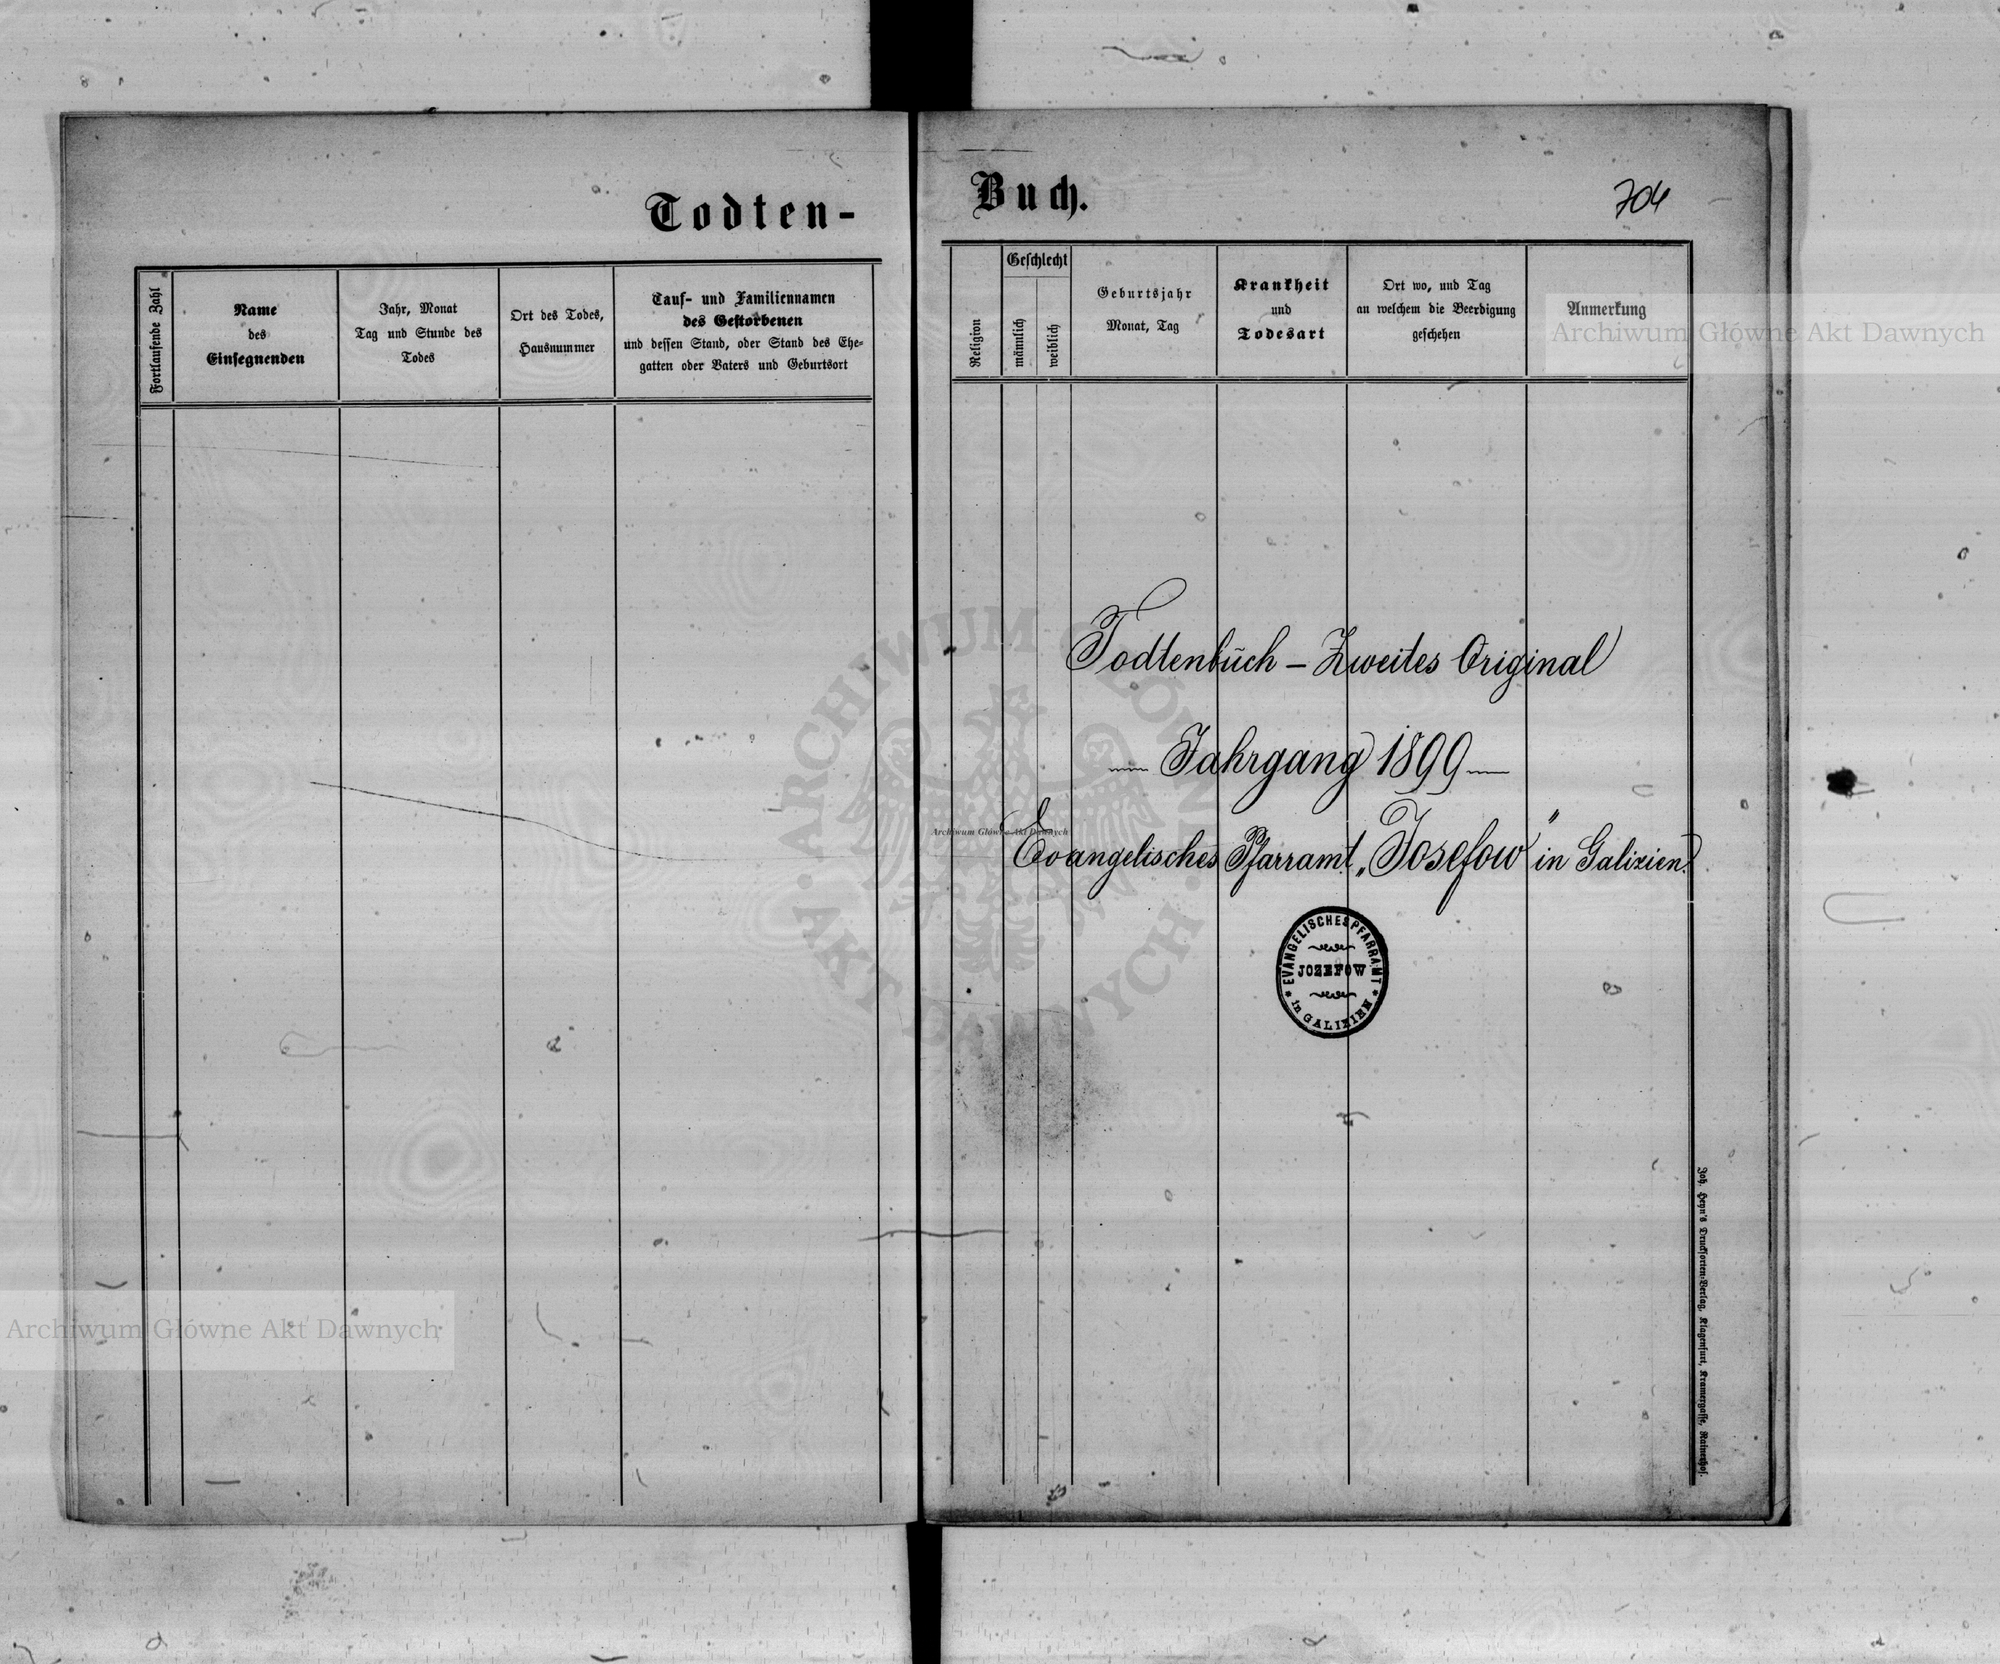 Todten-
Fortlaufende Zahl
Name
des
Einsegnenden
Jahr, Monat
Tag und Stunde des
Todes
Ort des Todes,
Hausnummer
Tauf- und Familiennamen
des Gestorbenen
und dessen Stand, oder Stand des Ehe-
gatten oder Vaters und Geburtsort
Buch.
704
Religion
Geschlecht
männlich
weiblich
Geburtsjahr
Monat, Tag
Krankheit
und
Todesart
Ort wo, und Tag
an welchem die Beerdigung
geschehen
Anmerkung
Archiwum Główne Akt Dawnych
Todtenbuch – Zweites Original
Jahrgang 1899
Evangelisches Pfarramt „Josefow" in Galizien.
Archiwum Główne Akt Dawnych
EVANGELISCHES PFARRAMT
JOZEFOW
in GALIZIEN
ARCHIWUM GŁÓWNE
AKT DAWNYCH
Archiwum Główne Akt Dawnych
Joh. Heyn's Drucksorten-Verlag, Klagenfurt, Kramergasse, Rainerhof.